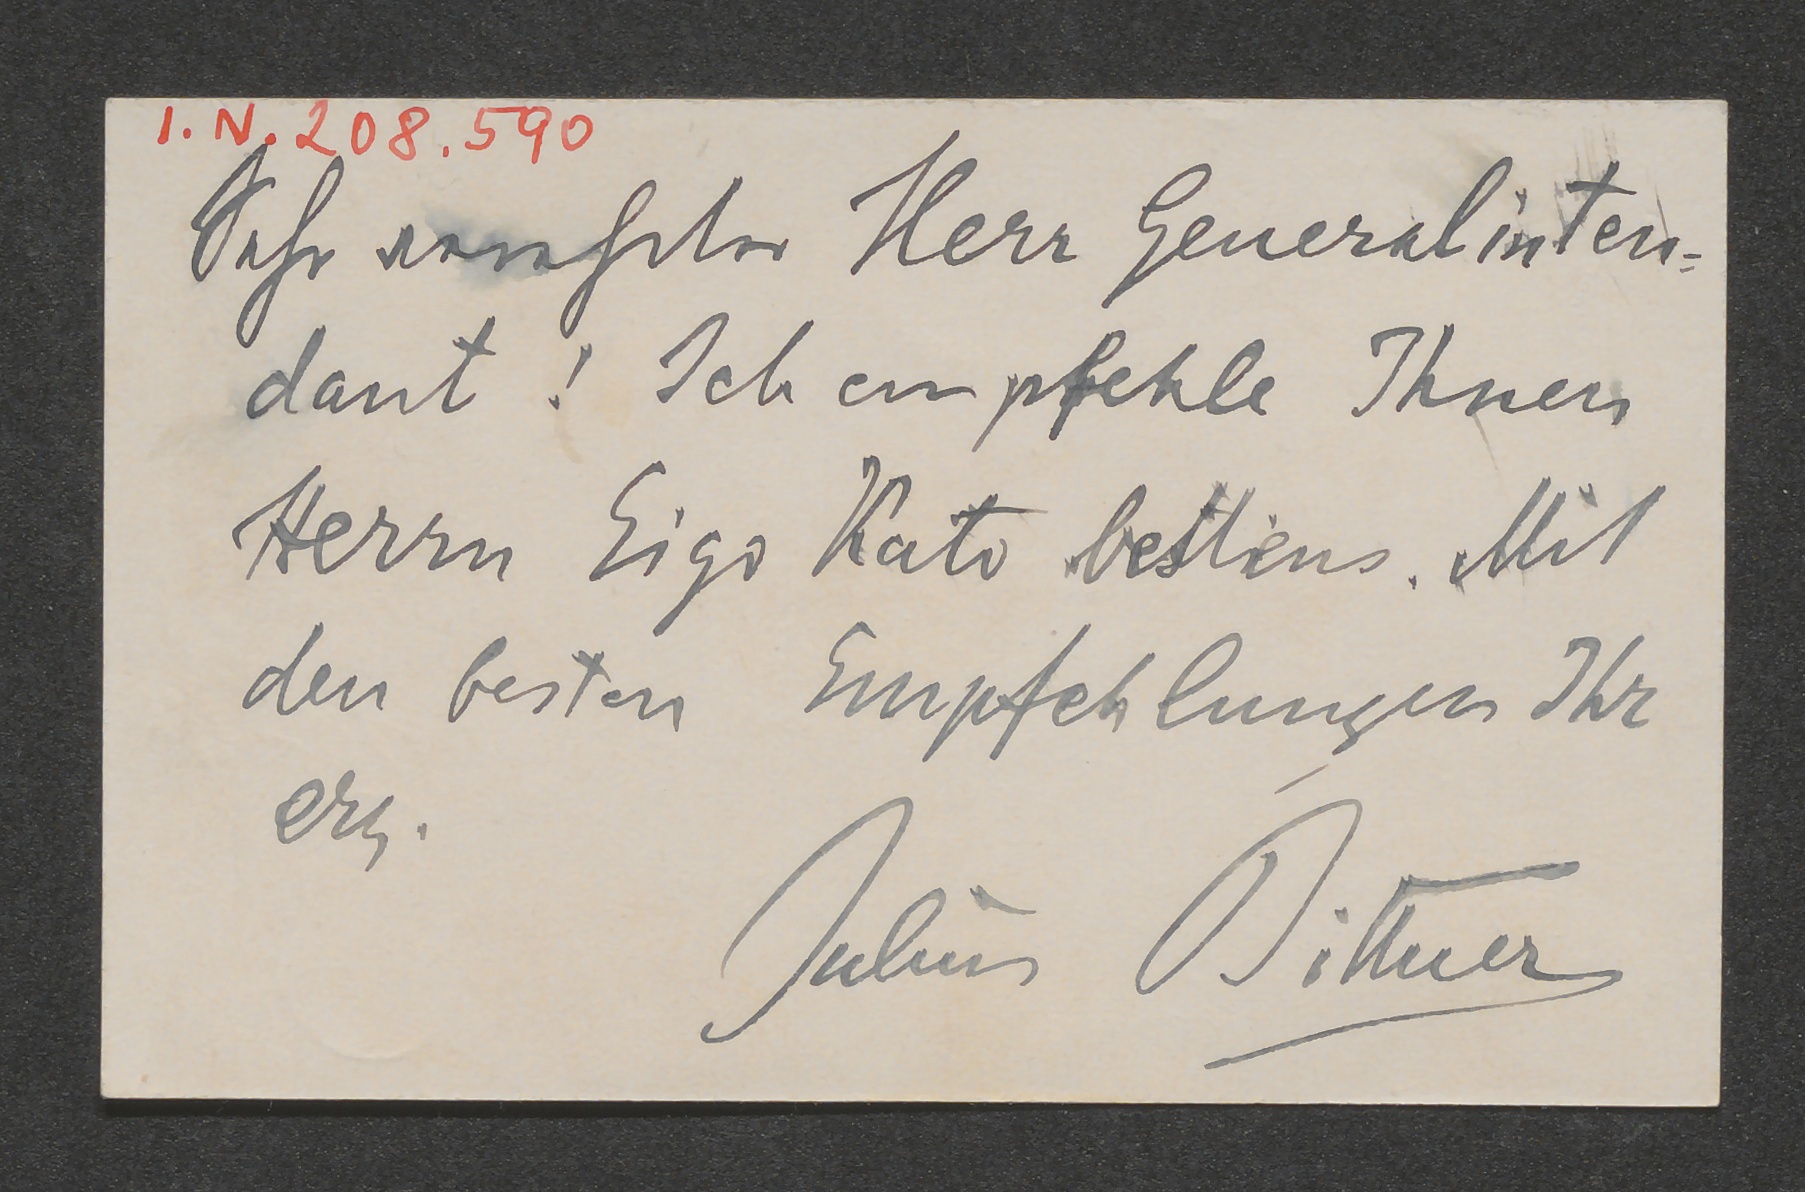 I.N. 208.590
Sehr verehrter Herr Generalinten-
dant! Ich empfehle Ihnen
Herrn Eigo Kato bestens. Mit
den besten Empfehlungen Ihr
erg.
Julius Bittner